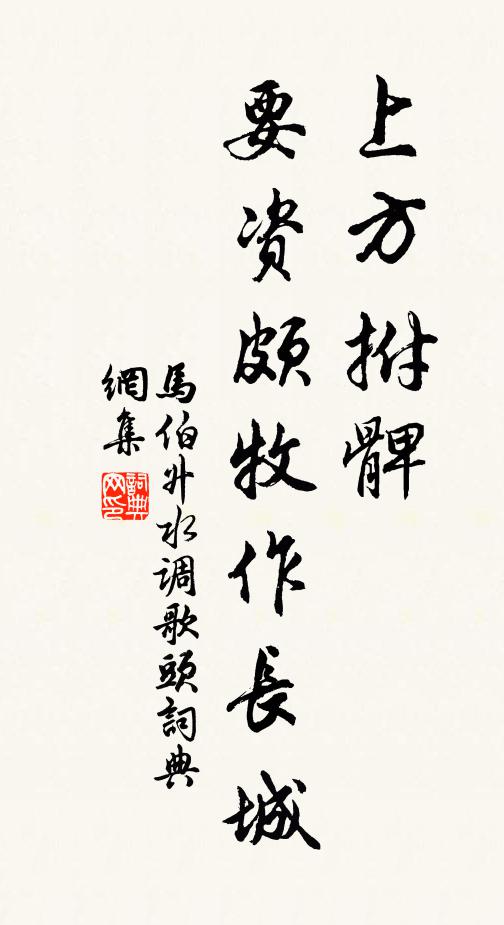 上方拊髀
要资颇牧作長城
馬伯升水调歌頭詞典
網集
詞典网印